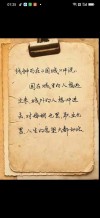 钱钟书在《围城》中说，
围在城里的人想逃
出来，城外的人想冲进
去，对婚姻也罢，职业也
罢，人生的愿望大都如此。